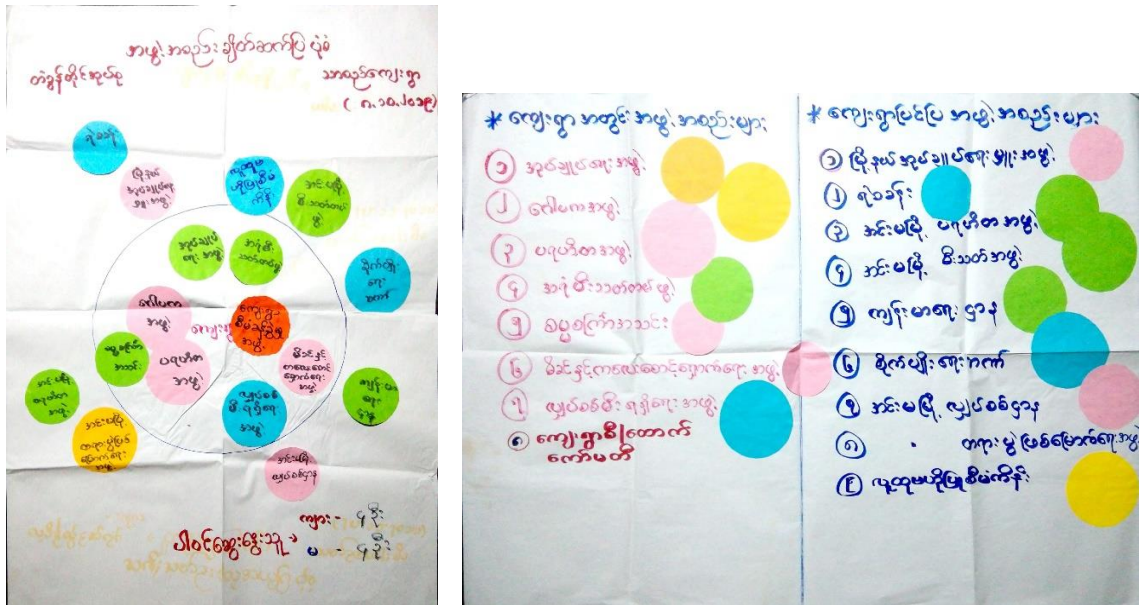 အဖွဲ့အစည်းချိတ်ဆက်ပြပုံစံ
တံခွန်တိုင်အုပ်စု
သာစည်ကျေးရွာ
( ၈.၁၀.၂၀၁၉)
ရဲစခန်း
မြို့နယ်
အုပ်ချုပ်ရေး
မှူးအဖွဲ့
လူထုဗဟိုပြုစီမံ
ကိန်း
အင်းမမြို့
မီးသတ်တပ်
ဖွဲ့
အုပ်ချုပ်
ရေး အဖွဲ့
အရံမီး
သတ်တပ်ဖွဲ့
စိုက်ပျိုး
ရေး
ဂေါပက
အဖွဲ့
ကျေးရွာ
အဖွဲ့
ပရဟိတ
အဖွဲ့
ဓမ္မစကြာ
အသင်း
မိခင်နှင့်
ကလေးစောင့်
ရှောက်ရေး
အဖွဲ့
လျှပ်စစ်
မီးရရှိရေး
အဖွဲ့
ကျန်းမာ
ရေး
ဌာန
အင်းမမြို့
ပရဟိတ
အဖွဲ့
အင်းမမြို့
အဖွဲ့
အင်းမမြို့
လျှပ်စစ်ဌာန
ပါဝင်ဆွေးနွေးသူ
ကျား - ၄ ဦး
မ - ၄ ဦး
* ကျေးရွာအတွင်း အဖွဲ့အစည်းများ
၁ အုပ်ချုပ်ရေးအဖွဲ့
၂ ဂေါပကအဖွဲ့
၃ ပရဟိတအဖွဲ့
၄ အရံမီးသတ်တပ်ဖွဲ့
၅ ဓမ္မစကြာအသင်း
၆ မိခင်နှင့်ကလေးစောင့်ရှောက်ရေး အဖွဲ့
၇ လျှပ်စစ်မီး ရရှိရေးအဖွဲ့
၈ ကျေးရွာစီ
ကော်မတီ
* ကျေးရွာပြင်ပြ အဖွဲ့အစည်းများ
၁ မြို့နယ်အုပ်ချုပ်ရေးမှူးအဖွဲ့
၂ ရဲစခန်း
၃ အင်းမမြို့ ပရဟိတအဖွဲ့
၄ အင်းမမြို့ မီးသတ်အဖွဲ့
၅ ကျန်းမာရေးဌာန
၆ စိုက်ပျိုးရေးဘဏ်
၇ အင်းမမြို့ လျှပ်စစ်ဌာန
၈ " တရားပွဲဖြစ်မြောက်ရေးအဖွဲ့
၉ လူထုဗဟိုပြုစီမံကိန်း